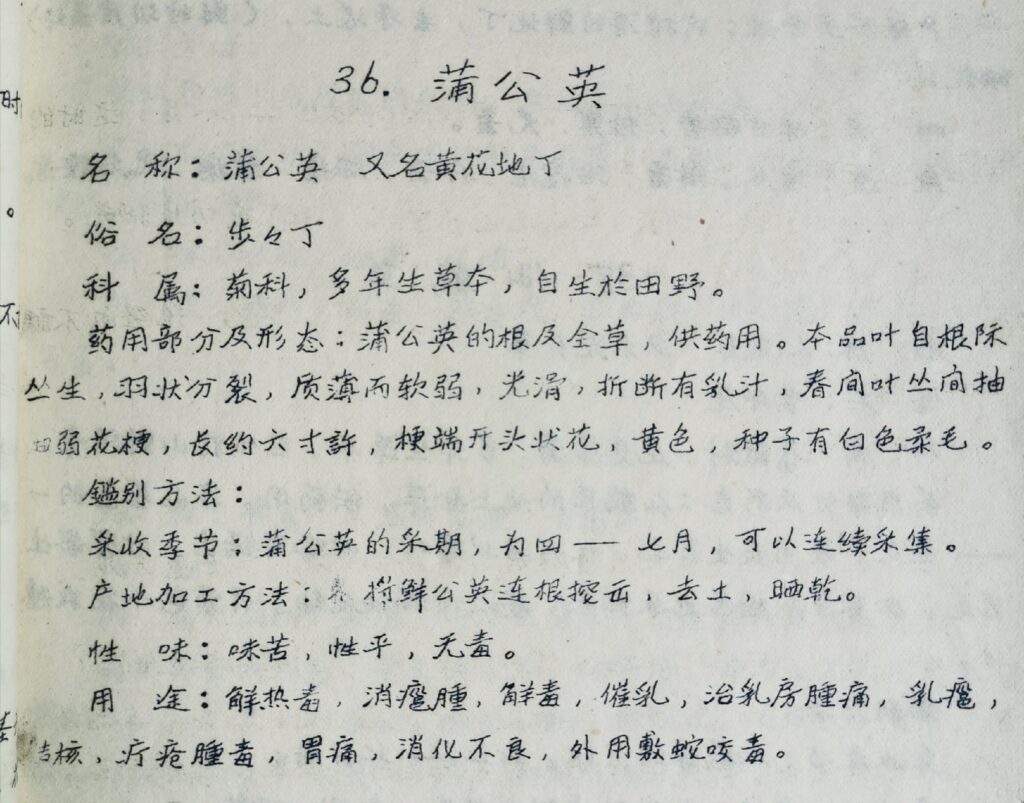 36. 蒲公英
名 称：蒲公英 又名黄花地丁
俗 名：步々丁
科 属：菊科，多年生草本，自生於田野。
药用部分及形态：蒲公英的根及全草，供药用。本品叶自根际
丛生，羽状分裂，质薄而软弱，光滑，折断有乳汁，春间叶丛间抽
弱花梗，长约六寸許，梗端开头状花，黄色，种子有白色柔毛。
鑑别方法：
采收季节：蒲公英的采期，为四——七月，可以连续采集。
产地加工方法：将鲜公英连根挖出，去土，晒乾。
性 味：味苦，性平，无毒。
用 途：解热毒，消癰腫，解毒，催乳，治乳房腫痛，乳癰，
结核，疔疮腫毒，胃痛，消化不良，外用敷蛇咬毒。
时
。
不